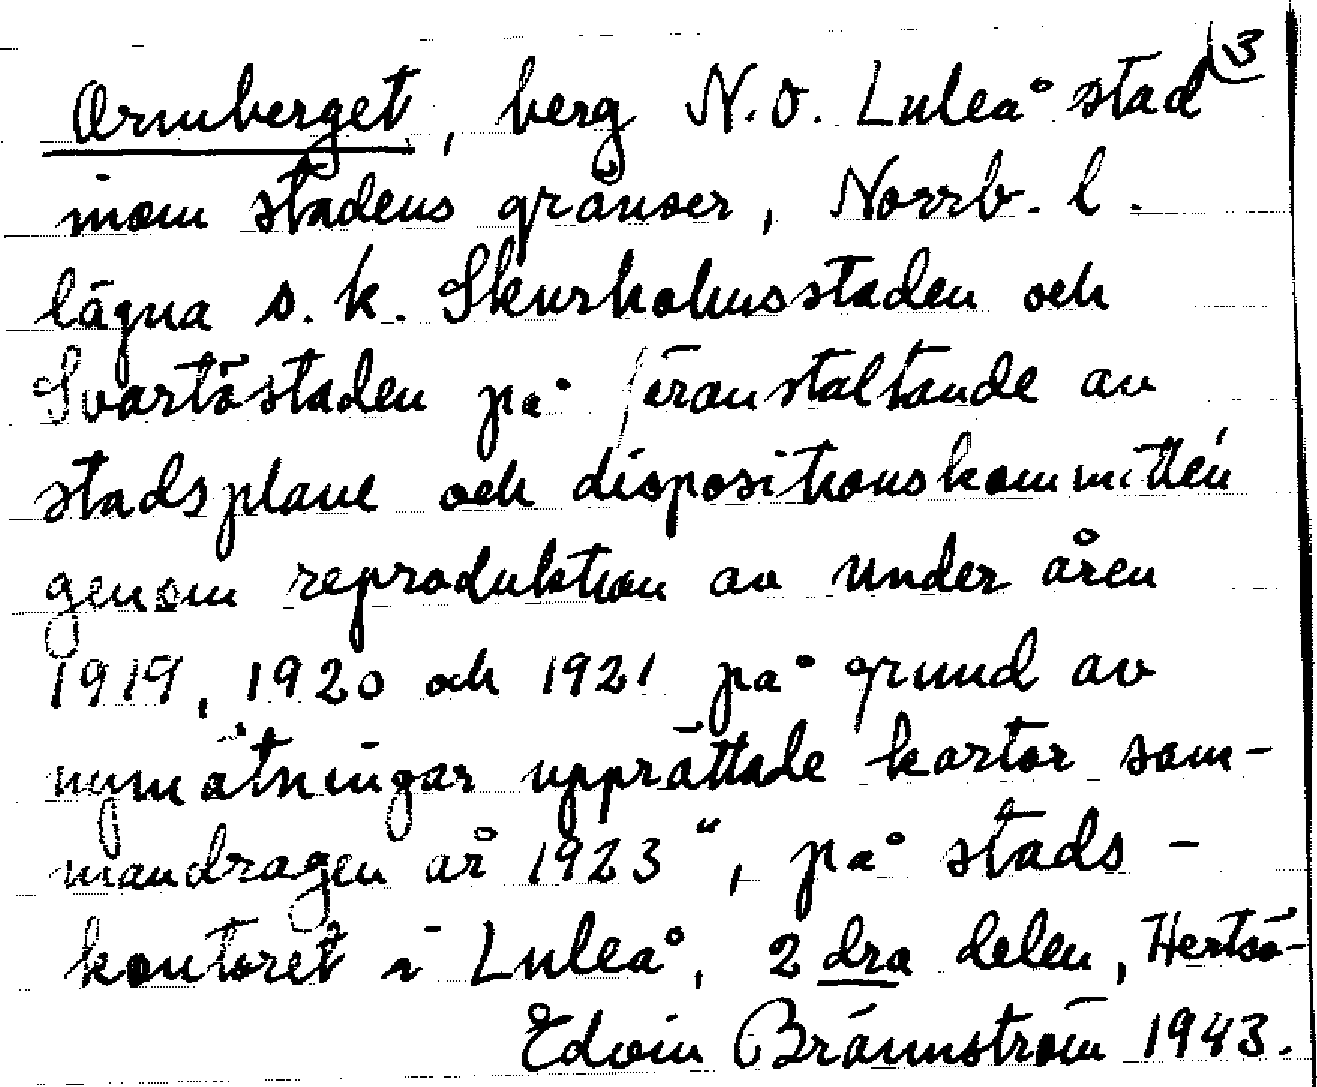 Ormberget, berg N.O. Luleå stad (3
inom stadens gränser, Norrb. l.
lägna s.k. Skurholmsstaden och
Svartöstaden på föranstaltande av
stadsplane och dispositionskommittén
genom reproduktion av under åren
1919, 1920 och 1921 på grund av
nymätningar upprättade kartor sam-
mandragen år 1923", på stads-
kontoret i Luleå, 2 dra delen, Hertsö-
Edvin Brännström 1943.